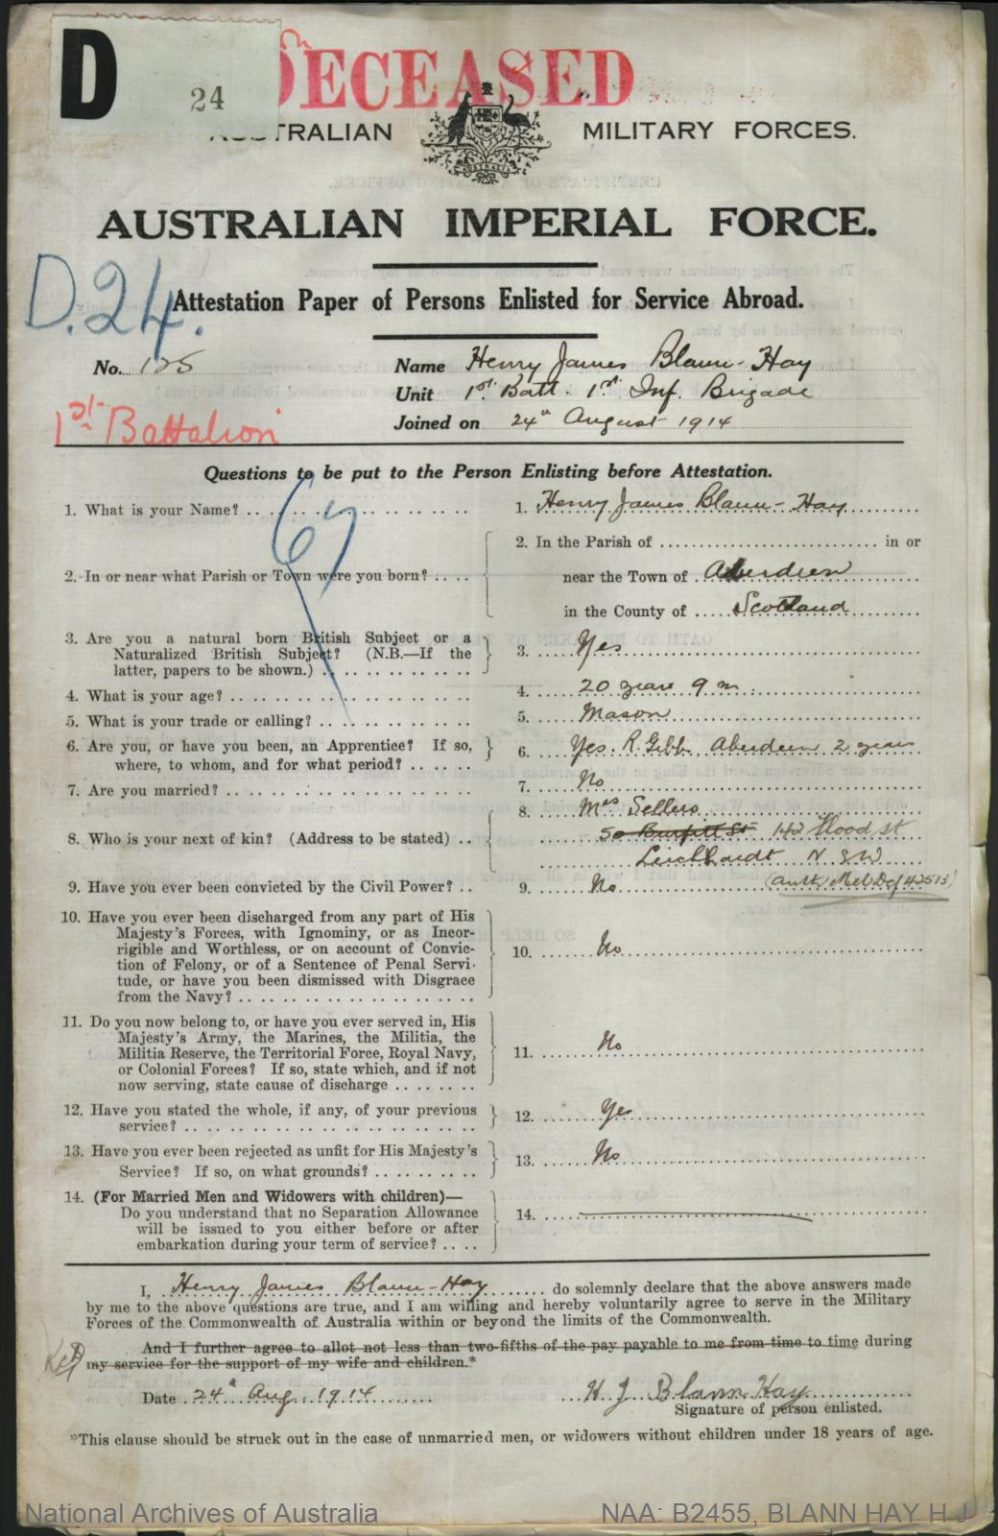 D
24
DECEASED
AUSTRALIAN MILITARY FORCES.
AUSTRALIAN IMPERIAL FORCE.
D.24.
Attestation Paper of Persons Enlisted for Service Abroad.
No. 125
Name Henry James Blann-Hay
Unit 1st. Batt. 1st. Inf. Brigade
Joined on 24th August 1914
1st Battalion
Questions to be put to the Person Enlisting before Attestation.
67
1. What is your Name? .. 1. Henry James Blann-Hay
2. In or near what Parish or Town were you born? .. .. 2. In the Parish of in or
near the Town of Aberdeen
in the County of Scotland
3. Are you a natural born British Subject or a
Naturalized British Subject? (N.B.—If the
latter, papers to be shown.) 3. Yes
4. What is your age? 4. 20 years 9 m
5. What is your trade or calling? 5. Mason
6. Are you, or have you been, an Apprentice? If so,
where, to whom, and for what period? 6. Yes. R. Gibb Aberdeen 2 years
7. Are you married? 7. No
8. Who is your next of kin? (Address to be stated) .. 8. Mrs Sellers
50 St 142 Flood St
Leichhardt N S W
9. Have you ever been convicted by the Civil Power? .. 9. No (auth. Mel. Def 42513)
10. Have you ever been discharged from any part of His
Majesty's Forces, with Ignominy, or as Incor-
rigible and Worthless, or on account of Convic-
tion of Felony, or of a Sentence of Penal Servi-
tude, or have you been dismissed with Disgrace
from the Navy? 10. No
11. Do you now belong to, or have you ever served in, His
Majesty's Army, the Marines, the Militia, the
Militia Reserve, the Territorial Force, Royal Navy,
or Colonial Forces? If so, state which, and if not
now serving, state cause of discharge 11. No
12. Have you stated the whole, if any, of your previous
service? 12. Yes
13. Have you ever been rejected as unfit for His Majesty's
Service? If so, on what grounds? 13. No
14. (For Married Men and Widowers with children)—
Do you understand that no Separation Allowance
will be issued to you either before or after
embarkation during your term of service? 14.
I, Henry James Blann-Hay do solemnly declare that the above answers made
by me to the above questions are true, and I am willing and hereby voluntarily agree to serve in the Military
Forces of the Commonwealth of Australia within or beyond the limits of the Commonwealth.
And I further agree to allot not less than two-fifths of the pay payable to me from time to time during
my service for the support of my wife and children.*
Date 24th Aug. 1914 H. J. Blann Hay
Signature of person enlisted.
*This clause should be struck out in the case of unmarried men, or widowers without children under 18 years of age.
National Archives of Australia NAA: B2455, BLANN HAY H J